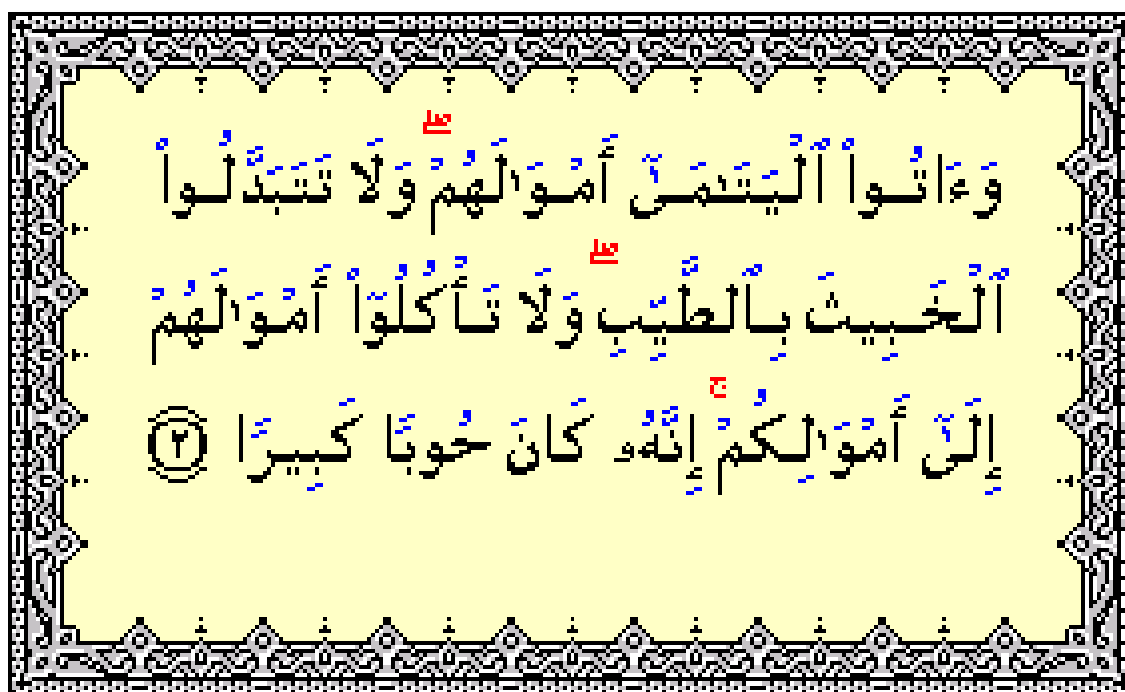 وَءَاتُوا۟ ٱلْيَتَـٰمَىٰٓ أَمْوَٰلَهُمْ ۖ وَلَا تَتَبَدَّلُوا۟
ٱلْخَبِيثَ بِٱلطَّيِّبِ ۖ وَلَا تَأْكُلُوٓا۟ أَمْوَٰلَهُمْ
إِلَىٰٓ أَمْوَٰلِكُمْ ۚ إِنَّهُۥ كَانَ حُوبًا كَبِيرًا ٢